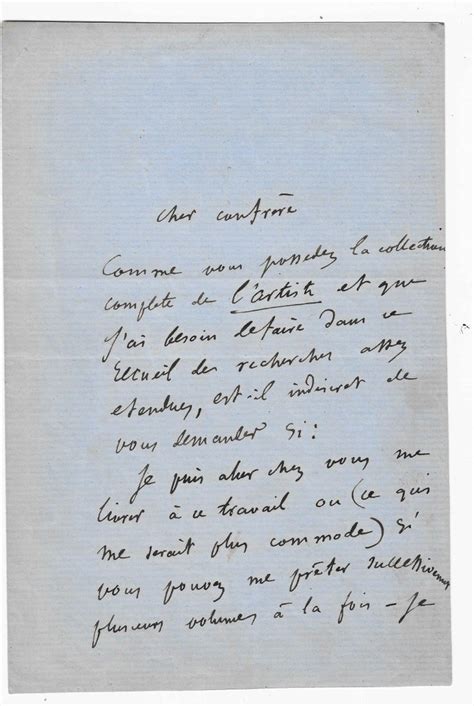 cher confrère
Comme vous possedez la collection
complete de l'artiste et que
j'ai besoin de faire dans ce
recueil des recherches assez
etendues, est-il indiscret de
vous demander si :
Je puis aller chez vous me
livrer à ce travail ou (ce qui
me serait plus commode) si
vous pouvez me prêter successivement
plusieurs volumes à la fois — Je